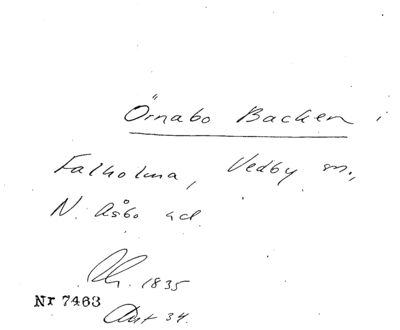 Örnabo Backen i
Falholma, Vedby sn.,
N. Åsbo hd.
1835
Nr 7463
Akt 34.